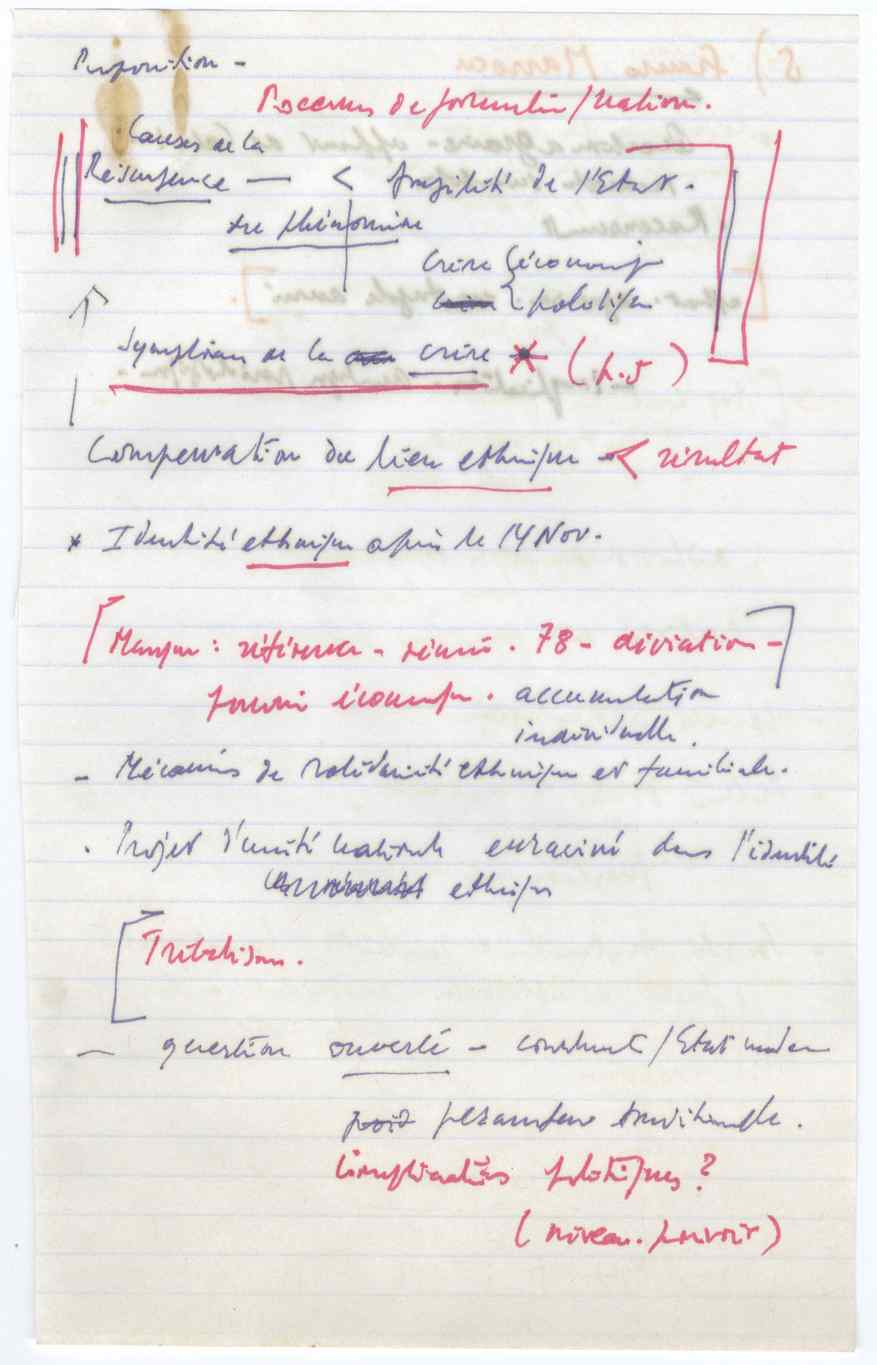 Proposition -
Processus de formation/nation.
Causes de la
Résurgence — < fragilité de l'Etat.
du phénomène
Crise { économiq
politiqu
Symptôme de la crise * (p.5)
Compensation du lien ethnique < résultat
* Identité ethnique après le 14 Nov.
Manque : référence - réunis . 78 - déviation -
économiq . accumulation
individuelle.
- Mécanis de solidarité ethnique et familiale.
. Projet d'unité nationale enraciné dans l'identité
ethniqu
Tribalisme.
— question ouverte - construct/Etat moderne
poid pesanteur traditionnelle.
Implications politiques ?
(niveau. pouvoir)